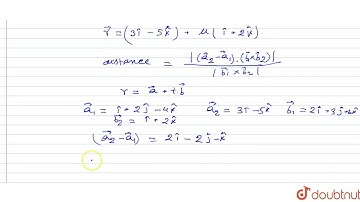 r⃗ = (3î - 5k̂) + μ (î + 2k̂)
distance = |(a⃗₂-a⃗₁).(b⃗₁×b⃗₂)| / |b⃗₁×b⃗₂|
r = a⃗ + t.b⃗
a⃗₁ = î + 2ĵ - 4k̂ a⃗₂ = 3î - 5k̂ b⃗₁ = 2î + 3ĵ + 6k̂
b⃗₂ = î + 2k̂
(a⃗₂-a⃗₁) = 2î - 2ĵ - k̂
doubtnut